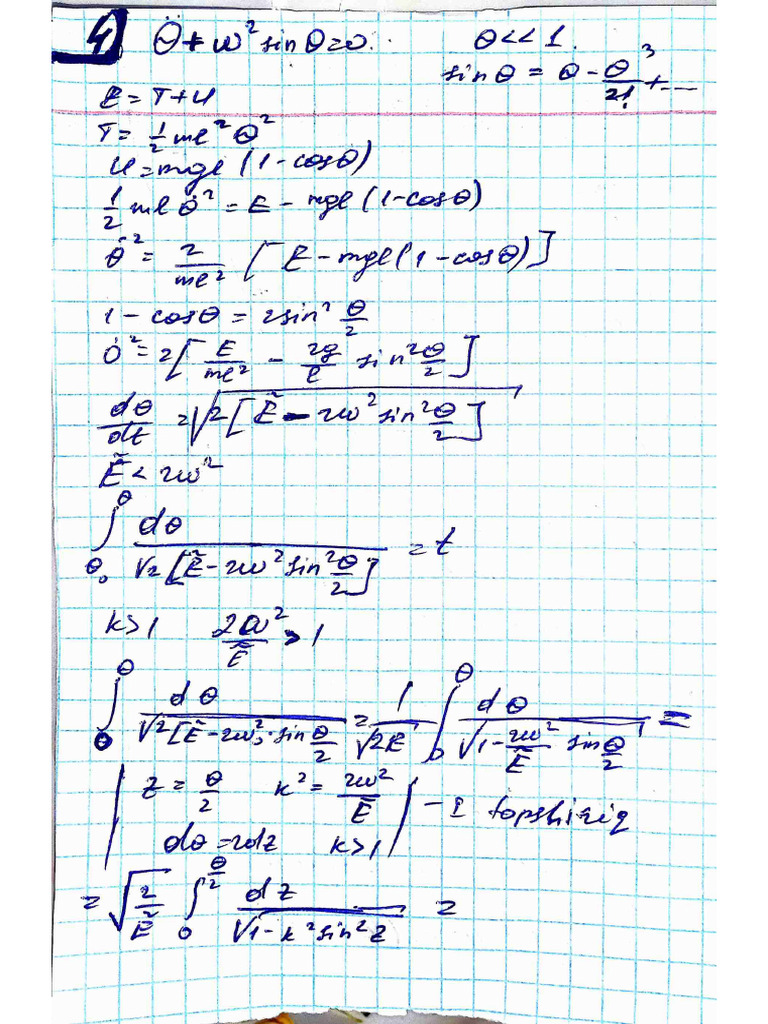 4) θ̈ + ω² sin θ = 0. θ << 1.
sin θ = θ - θ³/2! + ...
E = T + U
T = 1/2 ml² θ̇²
U = mgl (1 - cosθ)
1/2 ml θ̇² = E - mgl (1 - cosθ)
θ̇² = 2/ml² [E - mgl (1 - cosθ)]
1 - cosθ = 2sin² θ/2
θ̇² = 2[E/ml² - 2g/l sin² θ/2]
dθ/dt = √(2[Ẽ - 2ω² sin² θ/2])
Ẽ < 2ω²
∫_θ₀^θ dθ/√(2[Ẽ - 2ω² sin² θ/2]) = t
k > 1 2ω²/Ẽ > 1
∫_0^θ dθ/√(2[Ẽ - 2ω² · sin θ/2]) = 1/√(2E) ∫_0^θ dθ/√(1 - 2ω²/Ẽ sin θ/2) =
| z = θ/2 k² = 2ω²/Ẽ | - I topshiriq
| dθ = 2dz k > 1 |
= √(2/Ẽ) ∫_0^(θ/2) dz/√(1 - k² sin² z) =